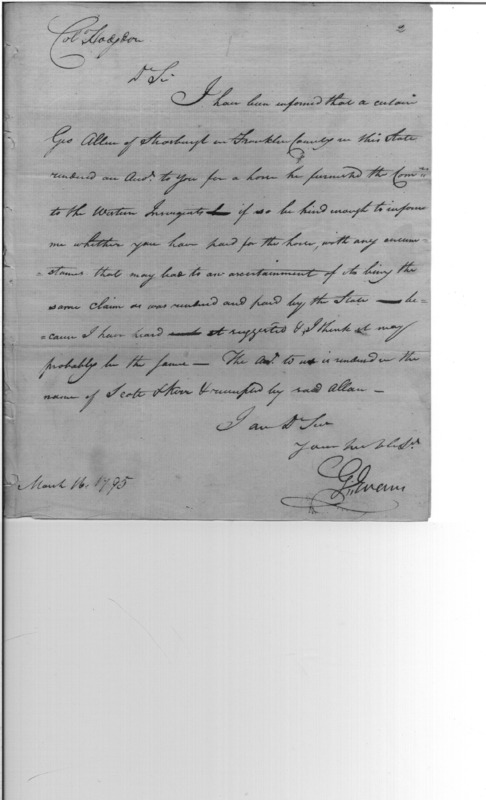 Col Hodgdon
Dr Sir
I have been informed that a certain
Geo Allen of Strasburgh in Franklin County in this State
rendered an Acct. to you for a horse he furnished the Comrs
to the Western Insurgents if so be kind enough to inform
me whether you have paid for the horse, with any circum-
-stances that may lead to an ascertainment of its being the
same claim as was rendered and paid by the State — be-
-cause I have heard it suggested & I think it may
probably be the same — The Act. to us is rendered in the
name of Scott & Kerr & receipted by said Allan —
I am Dr Sir
Your
March 16, 1795
Evans